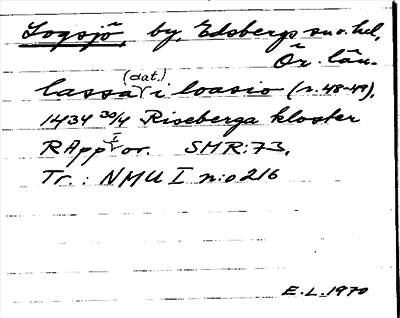 Logsjö, by, Edsbergs sn o. hd,
Ör. län.
lassa (dat.) i loasio (r. 48-49).
1434 30/4 Riseberga kloster
RApp I or. SMR:73,
Tr.: NMU I n:o 216
E.L. 1970